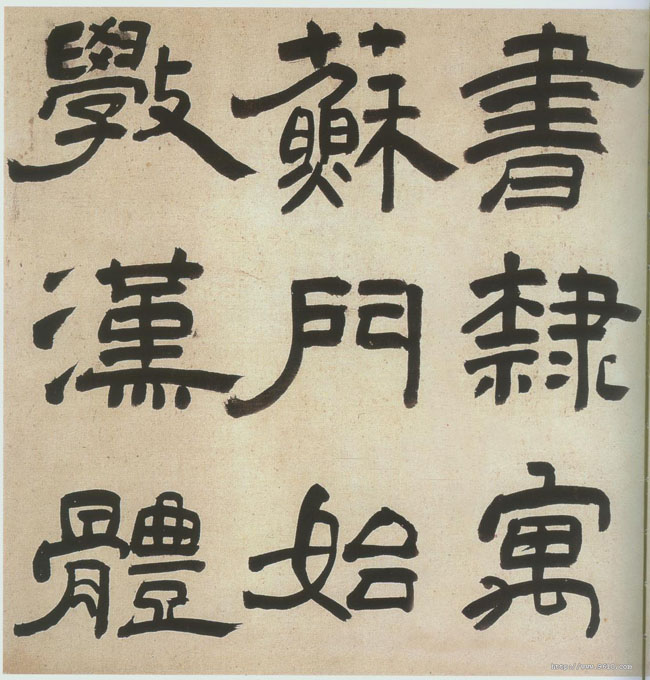 書隷寓
蘇門始
斆漢體
http://www.9610.com